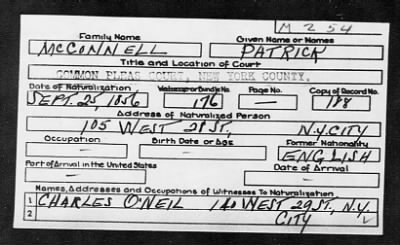 M 254
Family Name Given Name or Names
McCONNELL PATRICK
Title and Location of Court
COMMON PLEAS COURT, NEW YORK COUNTY.
Date of Naturalization Volume or Bundle No. Page No. Copy of Record No.
SEPT. 25, 1856 176 — 188
Address of Naturalized Person
105 WEST 28 ST, N.Y. CITY
Occupation Birth Date or Age Former Nationality
— — ENGLISH
Port of Arrival in the United States Date of Arrival
— —
Names, Addresses and Occupations of Witnesses To Naturalization
1 CHARLES O'NEIL WEST 29 ST, N.Y.
2 CITY